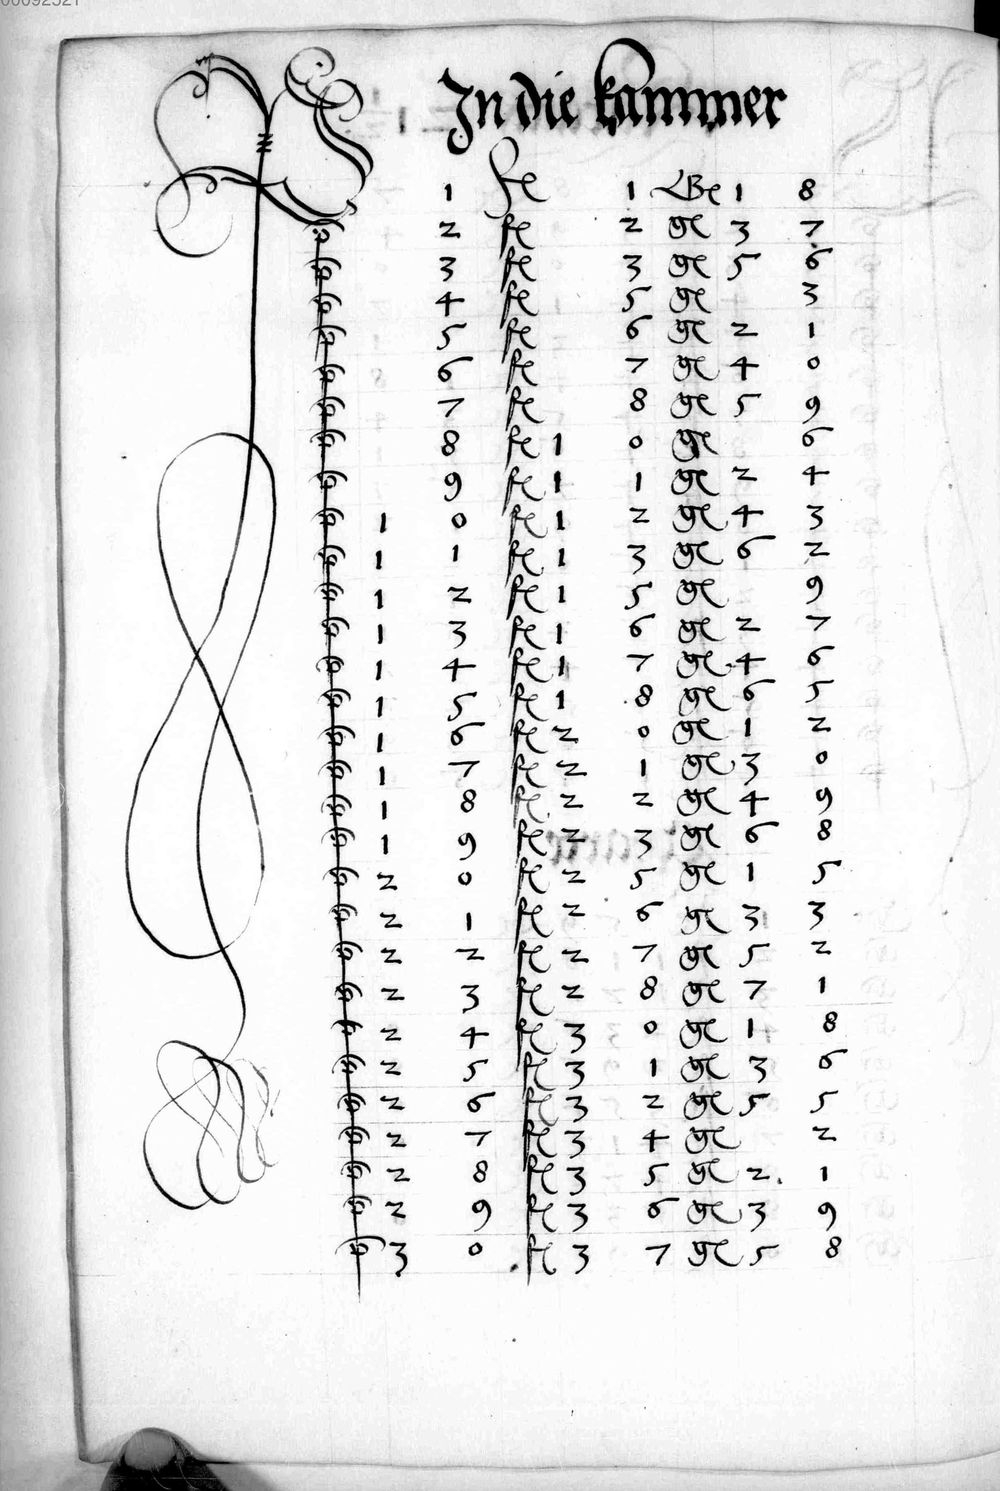 00092521
In die kammer
1 fl 1 ß 1 8
2 fl 2 ß 3 7
3 fl 3 ß 5 6
4 fl 5 ß 3
5 fl 6 ß 2 1
6 fl 7 ß 4 0
7 fl 8 ß 5 9
8 fl 1 0 ß 6
9 fl 1 1 ß 2 4
1 0 fl 1 2 ß 4 3
1 1 fl 1 3 ß 6 2
1 2 fl 1 5 ß 9
1 3 fl 1 6 ß 2 7
1 4 fl 1 7 ß 4 6
1 5 fl 1 8 ß 6 5
1 6 fl 2 0 ß 1 2
1 7 fl 2 1 ß 3 0
1 8 fl 2 2 ß 4 9
1 9 fl 2 3 ß 6 8
2 0 fl 2 5 ß 1 5
2 1 fl 2 6 ß 3 3
2 2 fl 2 7 ß 5 2
2 3 fl 2 8 ß 7 1
2 4 fl 3 0 ß 1 8
2 5 fl 3 1 ß 3 6
2 6 fl 3 2 ß 5 5
2 7 fl 3 4 ß 2
2 8 fl 3 5 ß 2 1
2 9 fl 3 6 ß 3 9
3 0 fl 3 7 ß 5 8